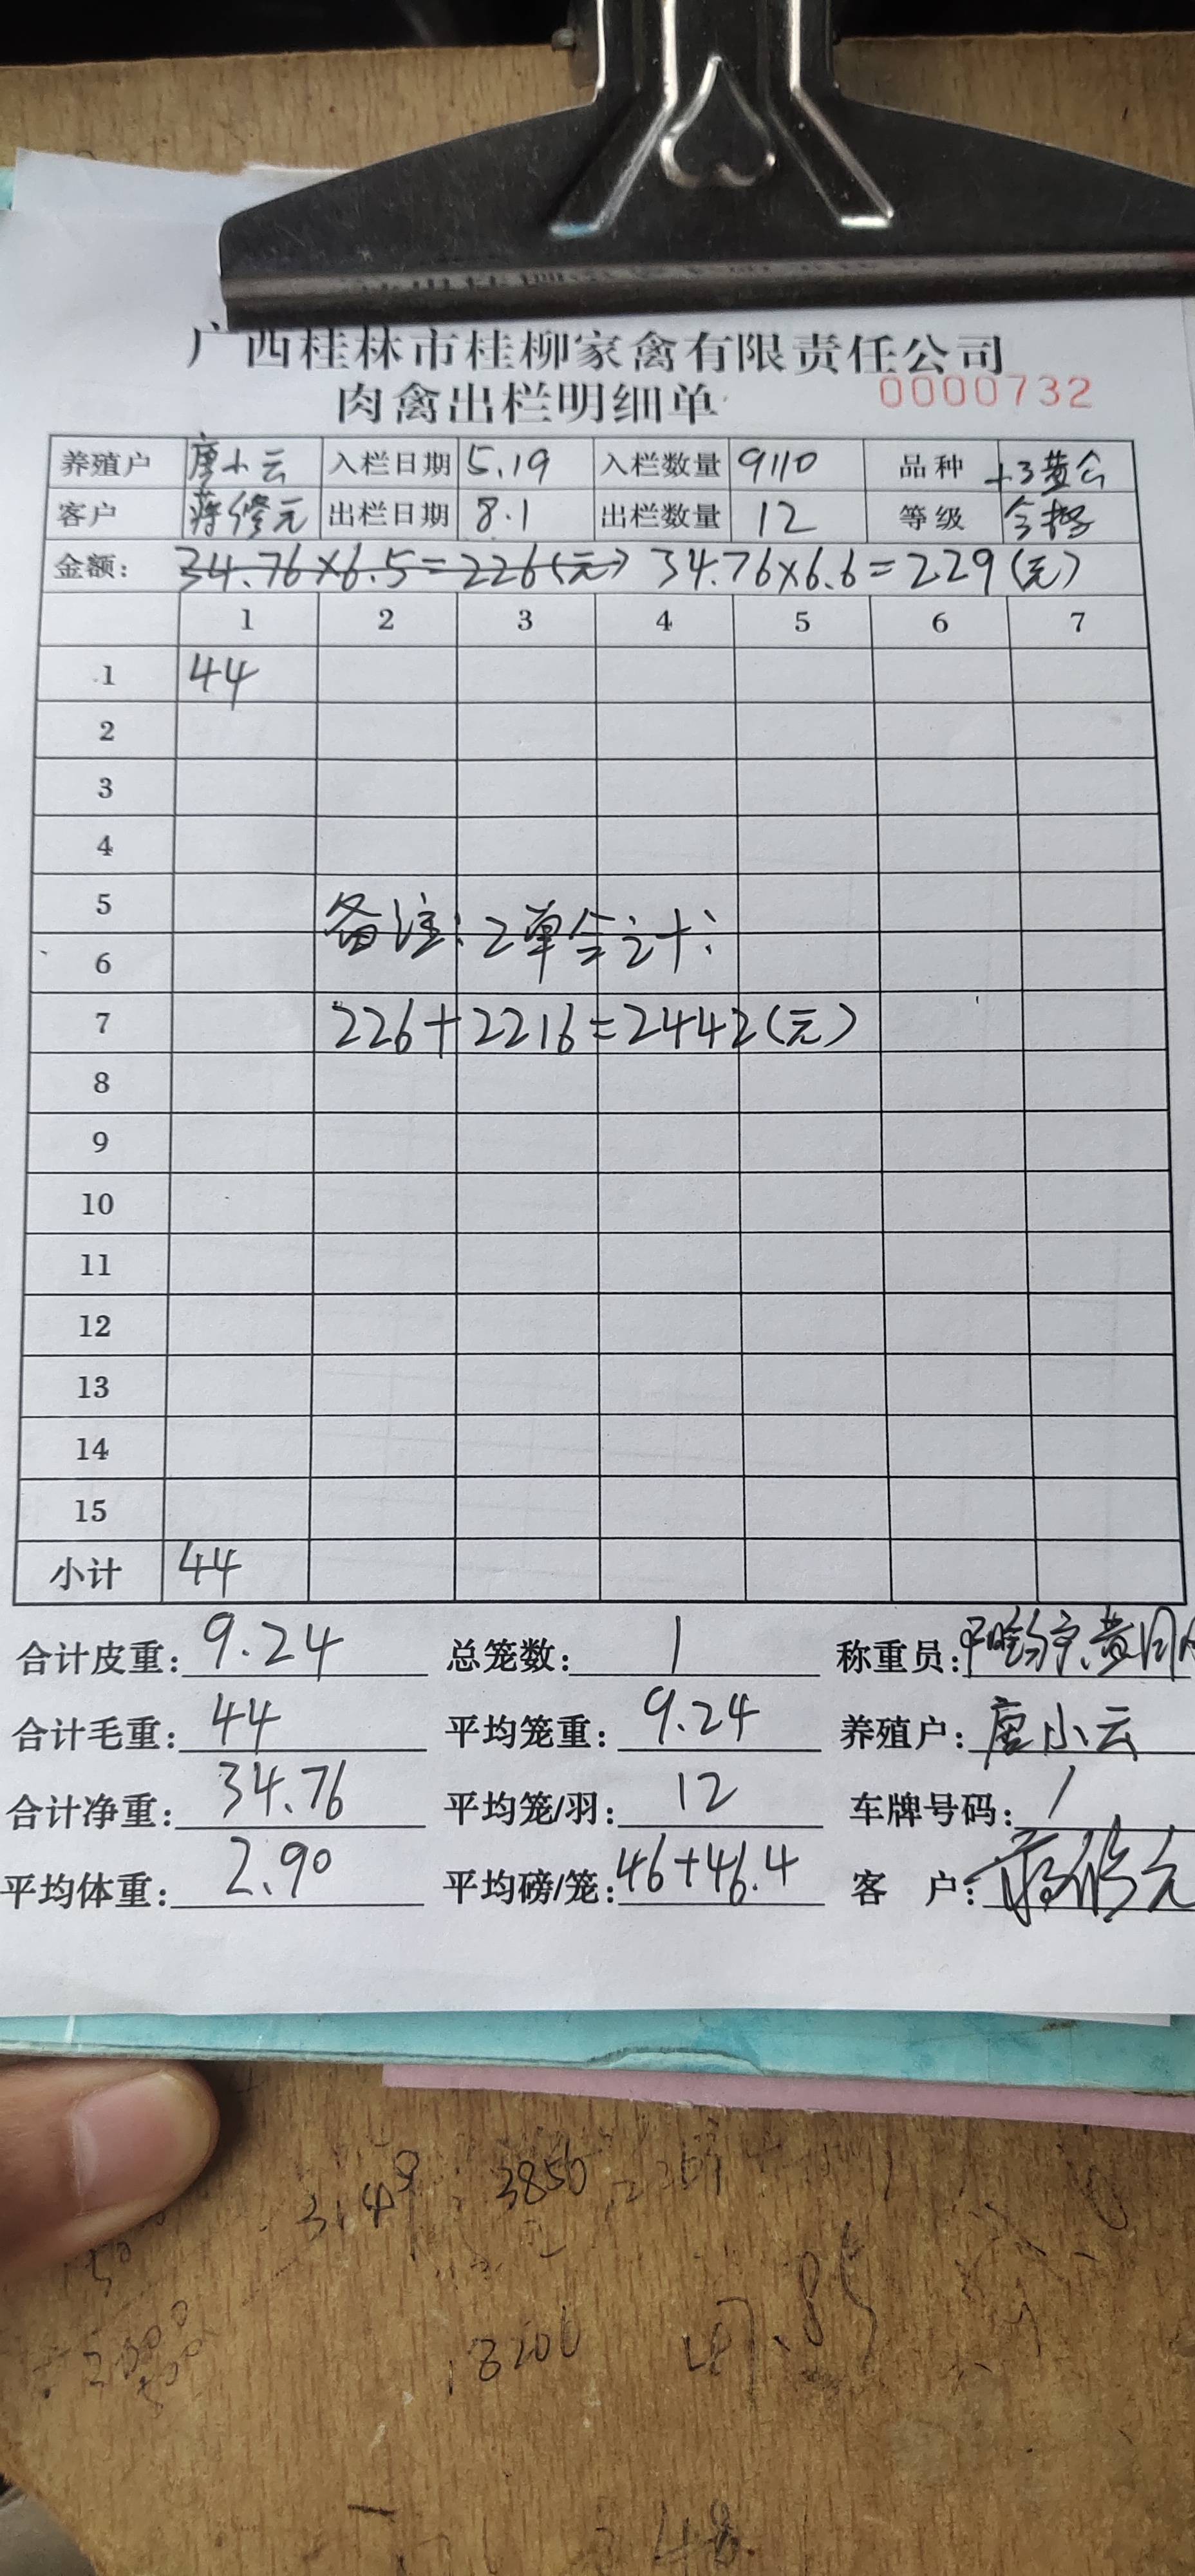 广西桂林市桂柳家禽有限责任公司
肉禽出栏明细单
0000732
养殖户 唐小云 入栏日期 5.19 入栏数量 9110 品种
客户 蒋修元 出栏日期 8.1 出栏数量 12 等级
金额: 34.76×6.5=226(元) 34.76×6.6=229(元)
1 2 3 4 5 6 7
1 44
2
3
4
5
6
备注:2单合计:
7 226+2216=2442(元)
8
9
10
11
12
13
14
15
小计 44
合计皮重: 9.24 总笼数: 1 称重员:
合计毛重: 44 平均笼重: 9.24 养殖户: 唐小云
合计净重: 34.76 平均笼/羽: 12 车牌号码: /
平均体重: 2.90 平均磅/笼: 46+46.4 客 户: 蒋修元
3850
3200